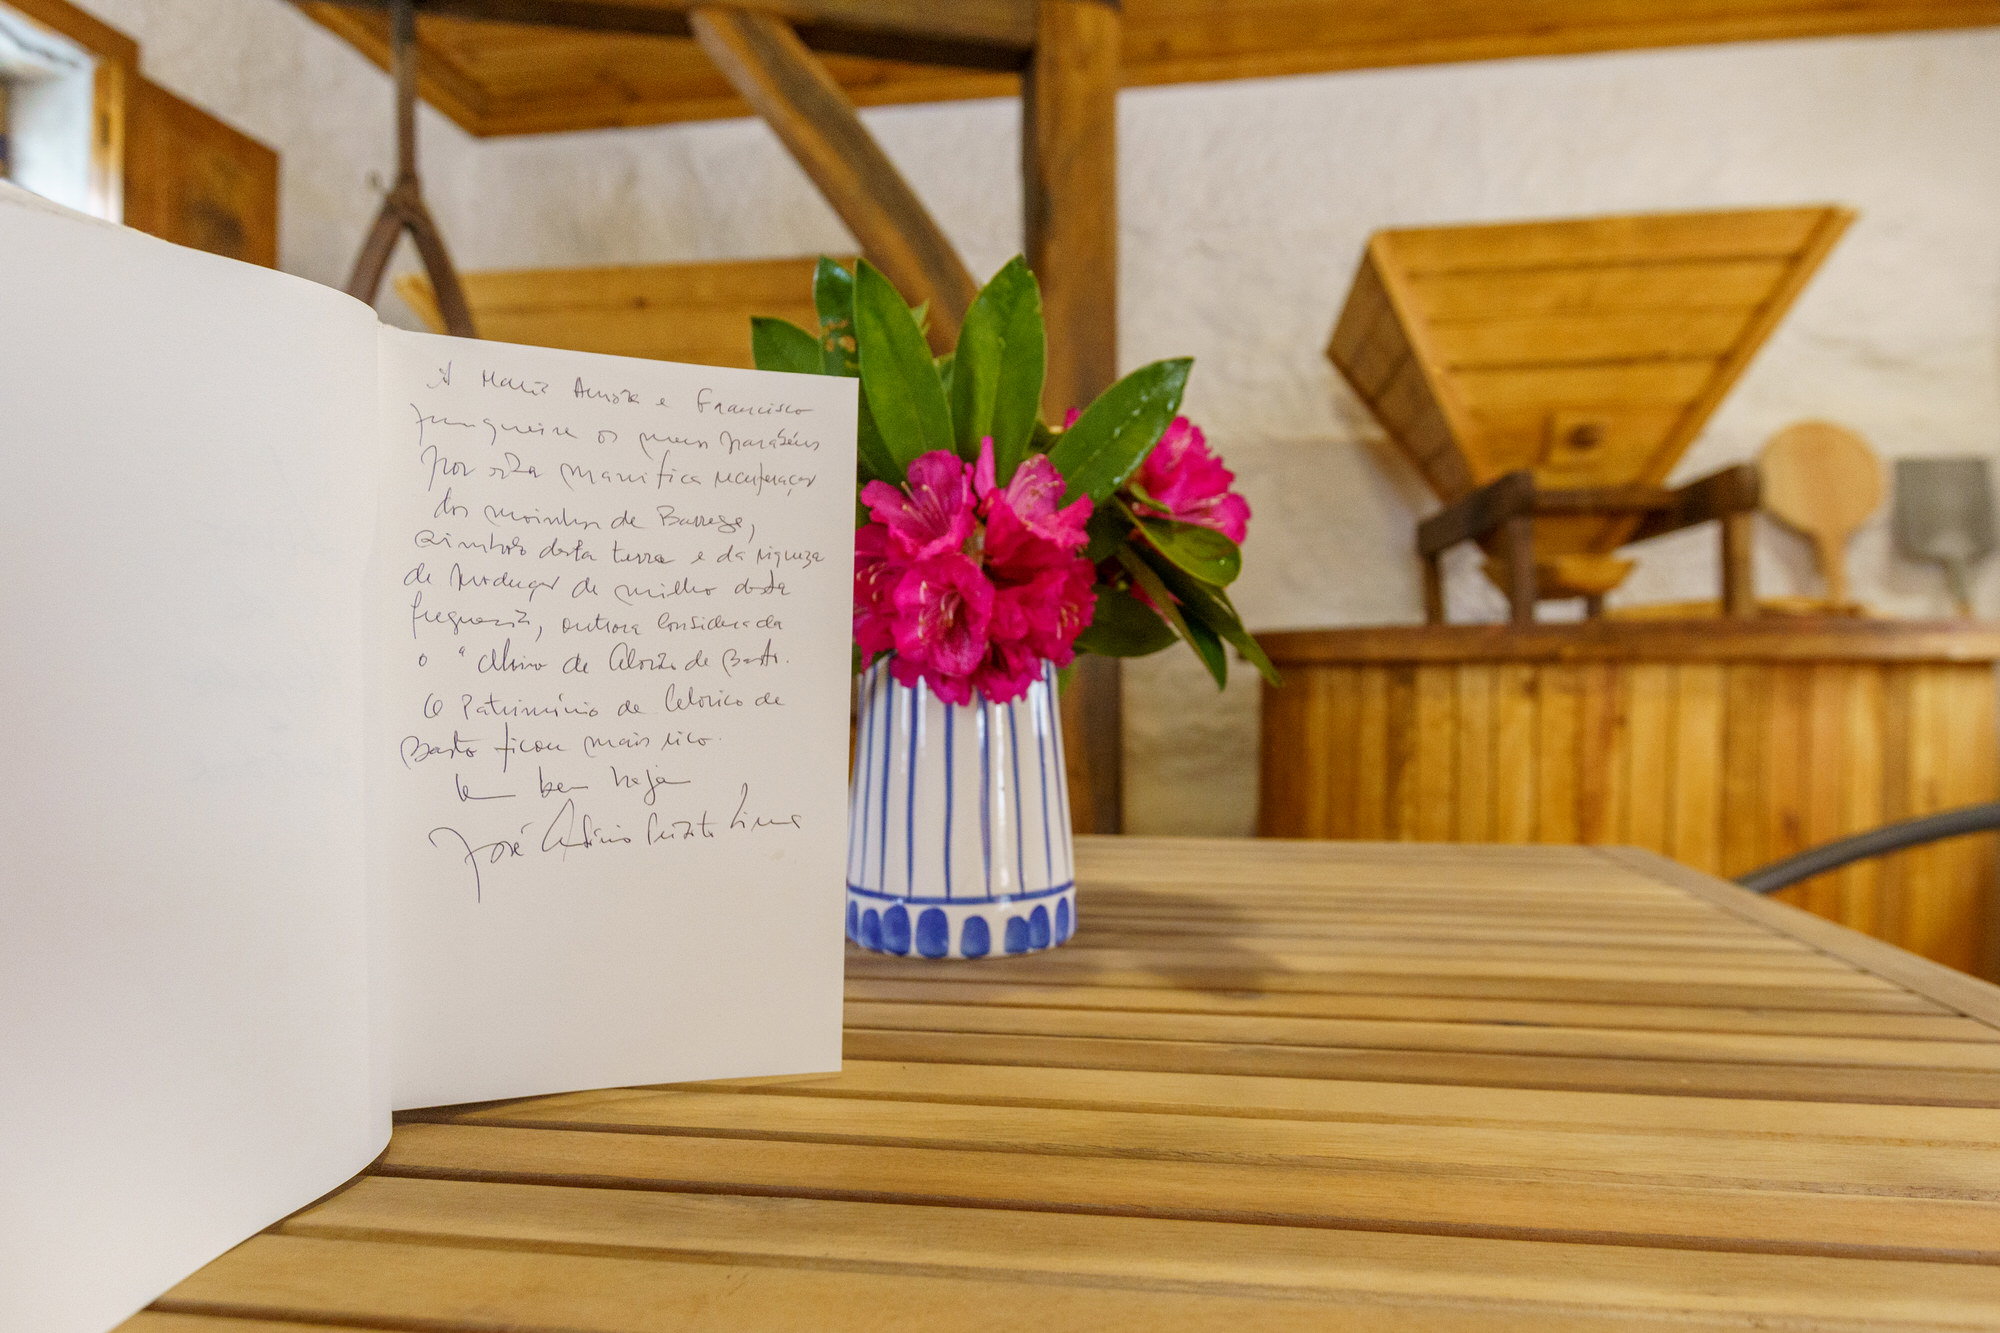 À Maria Aurora e Francisco
Junqueira os meus parabéns
por esta magnífica recuperação
dos moinhos de Barrega,
símbolo desta terra e da riqueza
de produção de milho desta
freguesia, outrora considerada
o "celeiro de Celorico de Basto.
O Património de Celorico de
Basto ficou mais rico.
Um bem haja
José Peixoto Lima